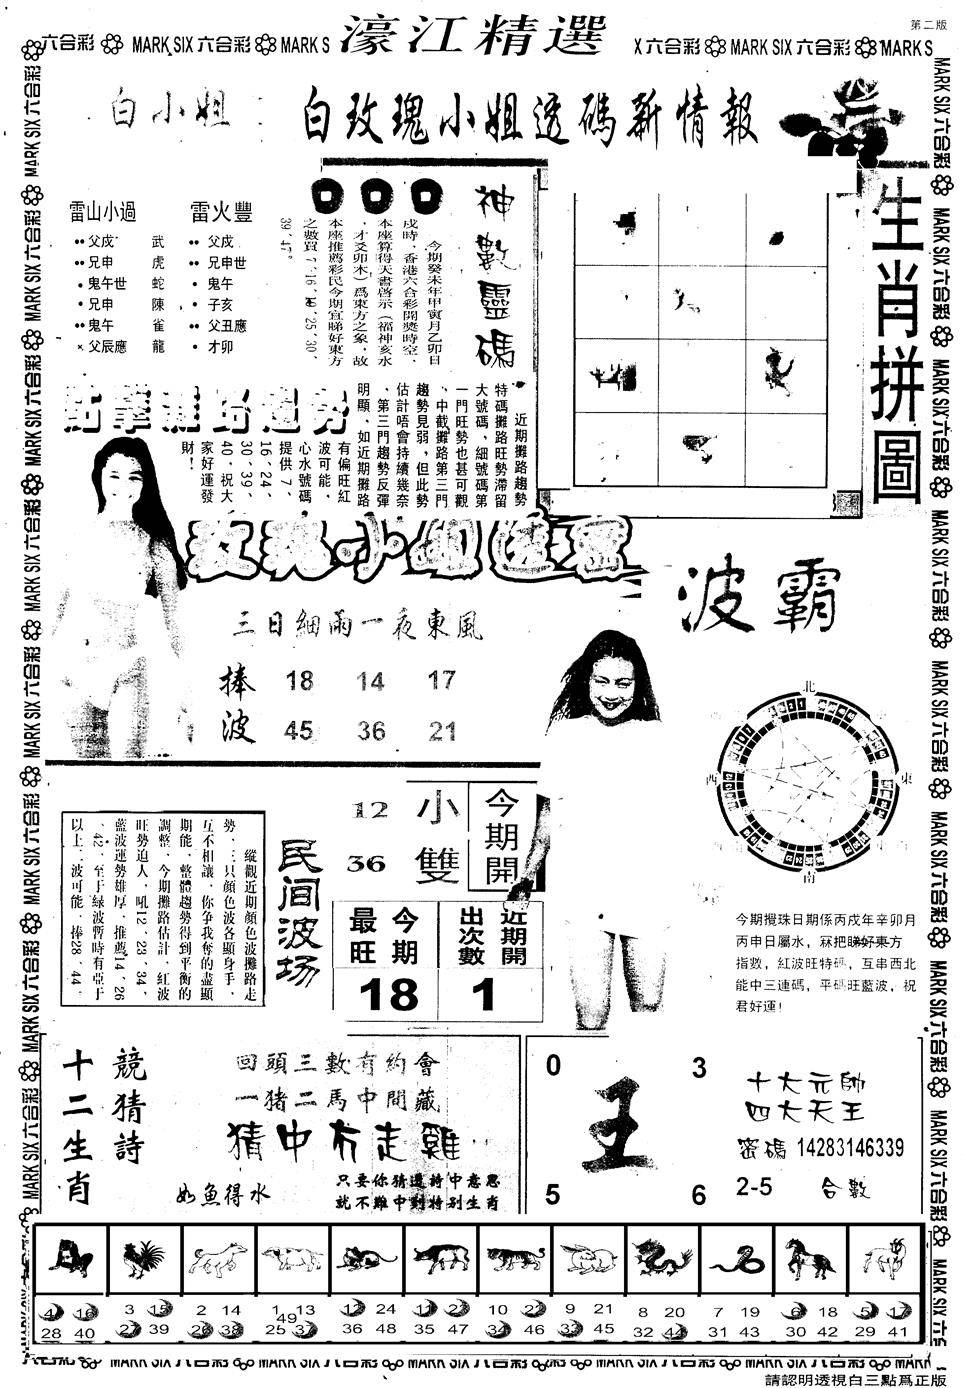 第二版
六合彩 MARK SIX 六合彩 MARK S
濠江精選
X 六合彩 MARK SIX 六合彩 MARK S
白小姐
白玫瑰小姐透碼新情報
雷山小過
雷火豐
父戍 武 父戍
兄申 虎 兄申世
鬼午世 蛇 鬼午
兄申 陳 子亥
鬼午 雀 父丑應
父辰應 龍 才卯
神數靈碼
今期癸未年甲寅月乙卯日
戌時﹑香港六合彩開獎時空﹐
本座算得天書啓示（福神亥水
﹐才爻卯木）爲東方之象﹐故
本座推薦彩民今期宜睇好東方
之數買7﹑16﹑ ﹑25﹑30﹑
39﹑47。
生肖拼圖
點擊攤路趨勢
近期攤路趨勢
特碼攤路旺勢滯留
大號碼﹐細號碼第
一門旺勢也甚可觀
﹐中截攤路第三門
趨勢見弱﹐但此勢
估計唔會持續幾奈
﹐第三門趨勢反彈
明顯﹐如近期攤路
有偏旺紅
波可能﹐
心水號碼
提供7﹑
16﹑24﹑
30﹑39﹑
40﹐祝大
家好運發
財！
玫瑰小姐透靈
三日細雨一夜東風
捧波
18 14 17
45 36 21
波霸
北
西 東
南
今期攪珠日期係丙戌年辛卯月
丙申日屬水，冧把睇好東方
指數，紅波旺特碼，互串西北
能中三連碼，平碼旺藍波，祝
君好運！
縱觀近期顔色波攤路走
勢﹐三只顔色波各顯身手﹐
互不相讓﹐你争我奪的盡顯
期能﹐整體趨勢得到平衡的
調整﹐今期攤路估計﹐紅波
旺勢迫人﹐吼12﹑23﹑34﹐
藍波運勢雄厚﹐推薦14﹑26
﹑42﹐至于緑波暫時有壺于
以上﹐波可能﹐捧28﹑44﹒
民间波场
12 小
36 雙
今期開
今期最旺
近期開出次數
18 1
十二生肖
競猜詩
回頭三數有約會
一猪二馬中間藏
猜中冇走雞
如魚得水
只要你猜透詩中意思
就不難中對特别生肖
0 3
王
5 6
十大元帥
四大天王
密碼 14283146339
2-5 合數
4 16 28 40
3 15 27 39
2 14 26 38
1 13 49 25 37
12 24 36 48
11 23 35 47
10 22 34 46
9 21 33 45
8 20 32 44
7 19 31 43
6 18 30 42
5 17 29 41
請認明透視白三點爲正版